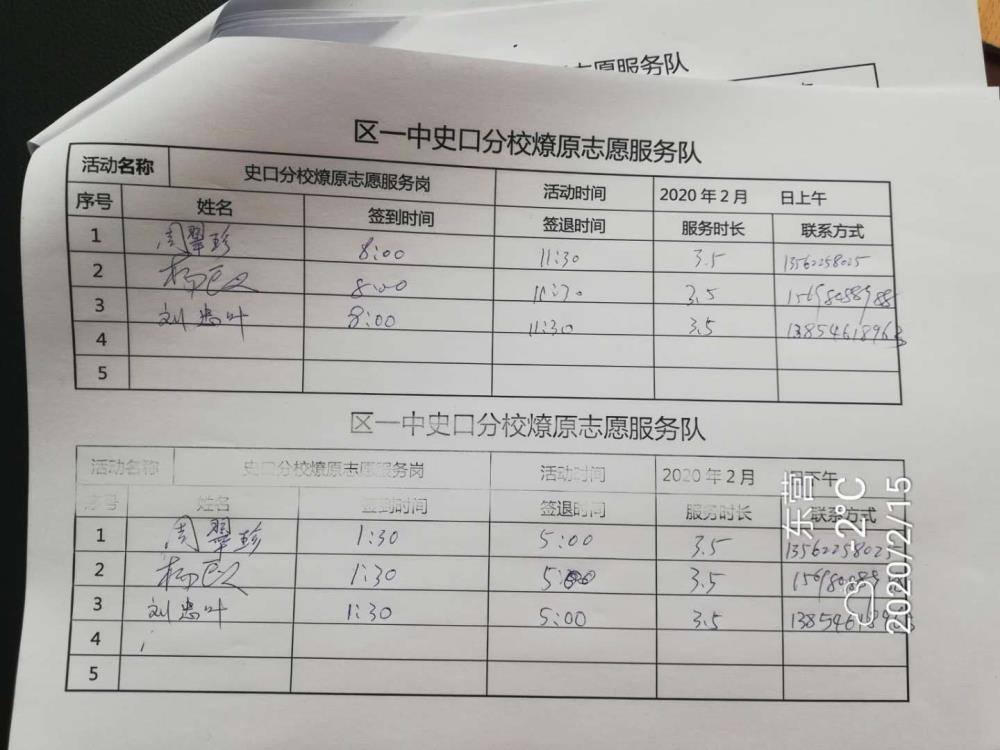 志愿服务队
区一中史口分校燎原志愿服务队
活动名称 史口分校燎原志愿服务岗 活动时间 2020年2月 日上午
序号 姓名 签到时间 签退时间 服务时长 联系方式
1 周翠珍 8:00 11:30 3.5 13562258025
2 8:00 11:30 3.5 15698058988
3 刘忠叶 8:00 11:30 3.5 13854618963
4
5
区一中史口分校燎原志愿服务队
活动名称 史口分校燎原志愿服务岗 活动时间 2020年2月 日下午
序号 姓名 签到时间 签退时间 服务时长 联系方式
1 周翠珍 1:30 5:00 3.5 13562258025
2 1:30 5:00 3.5
3 刘忠叶 1:30 5:00 3.5
4
5
东营 -2°C
2020/2/15